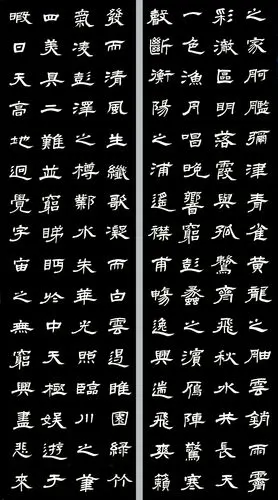 之家舸艦彌津青雀黃龍之舳雲銷雨霽
彩澈區明落霞與孤鶩齊飛秋水共長天
一色漁舟唱晚響窮彭蠡之濱雁陣驚寒
聲斷衡陽之浦遙襟甫暢逸興遄飛爽籟
發而清風生纖歌凝而白雲遏睢園綠竹
氣凌彭澤之樽鄴水朱華光照臨川之筆
四美具二難並窮睇眄於中天極娛遊于
暇日天高地迥覺宇宙之無窮興盡悲來